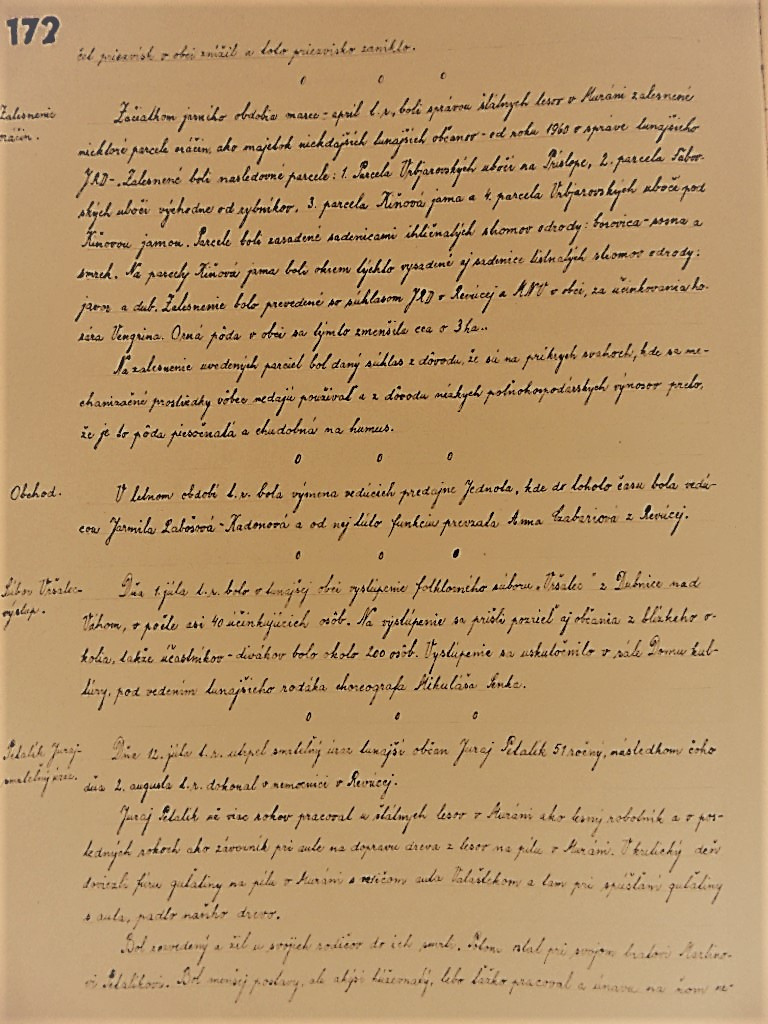 172
čet priezvísk v obci znížil a toto priezvisko zaniklo.
o o o
Zalesnenie
Začiatkom jarného obdobia marec-apríl t.r. boli správou štátnych lesov v Muráni zalesnené
niektoré parcele oráčin, ako majetok niekdajších tunajších občanov - od roku 1960 v správe tunajšieho
oráčin.
JRD-. Zalesnené boli nasledovné parcele: 1. Parcela Vrbjarovských uboči na Príslope, 2. parcela Fabov-
ských uboči východne od rybníkov, 3. parcela Kiňová jama a 4. parcela Vrbjarovských uboče pod
Kiňovou jamou. Parcele boli zasadené sadenicami ihličnatých stromov odrody: borovica-sosna a
smrek. Na parcely Kiňová jama boli okrem týchto vysadené aj sadenice listnatých stromov odrody:
javor a dub. Zalesnenie bolo prevedené so súhlasom JRD v Revúcej a MNV v obci, za účinkovania ho-
rára Vengrina. Orná pôda v obci sa týmto zmenšila cca o 3 ha..
Na zalesnenie uvedených parciel bol daný súhlas z dôvodu, že sú na príkrych svahoch, kde sa me-
chanizačné prostriedky vôbec nedajú používať a z dôvodu nízkych poľnohospodárskych výnosov preto,
že je to pôda piesočnatá a chudobná na humus.
o o o
Obchod.
V letnom období t.r. bola výmena vedúcich predajne Jednota, kde do tohoto času bola vedú-
cou Jarmila Labošová-Kadonová a od nej túto funkciu prevzala Anna Czabariová z Revúcej.
o o o
Súbor Vršatec-
výstup.
Dňa 1. júla t.r. bolo v tunajšej obci vystúpenie folklorného súboru „Vršatec" z Dubnice nad
Váhom, v počte asi 40 účinkujúcich osôb. Na vystúpenie sa prišli pozrieť aj občania z blízkeho o-
kolia, takže účastníkov-divákov bolo okolo 200 osôb. Vystúpenie sa uskutočnilo v sále Domu kul-
túry, pod vedením tunajšieho rodáka choreografa Mikuláša Senka.
o o o
Petalík Juraj-
smrteľný úraz.
Dňa 12. júla t.r. utrpel smrteľný úraz tunajší občan Juraj Petalík 51 ročný, následkom čoho
dňa 2. augusta t.r. dokonal v nemocnici v Revúcej.
Juraj Petalík už viac rokov pracoval u štátnych lesov v Muráni ako lesný robotník a v pos-
ledných rokoch ako závozník pri aute na dopravu dreva z lesov na pílu v Muráni. V kritický deň
doviezli fúru guľatiny na pílu v Muráni s vodičom auta Valaštekom a tam pri spúšťaní guľatiny
s auta, padlo naňho drevo.
Bol rozvedený a žil u svojich rodičov do ich smrti. Potom ostal pri svojom bratovi Martino-
vi Petalíkovi. Bol menšej postavy, ale akýsi húževnatý, lebo ťažko pracoval a únavu na ňom ne-